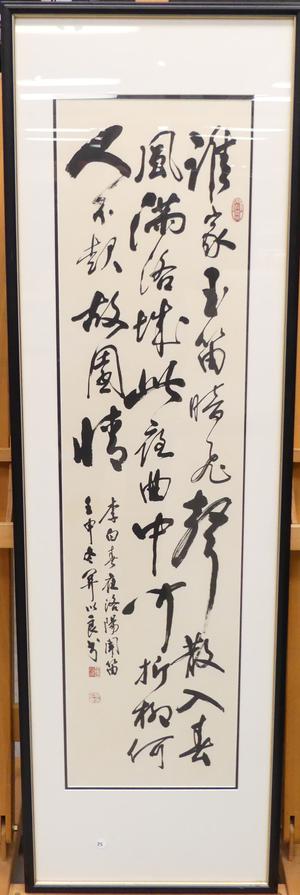 誰家玉笛暗飛聲散入春
風滿洛城此夜曲中聞折柳何
人不起故園情
李白春夜洛陽聞笛
壬申冬以良书
75